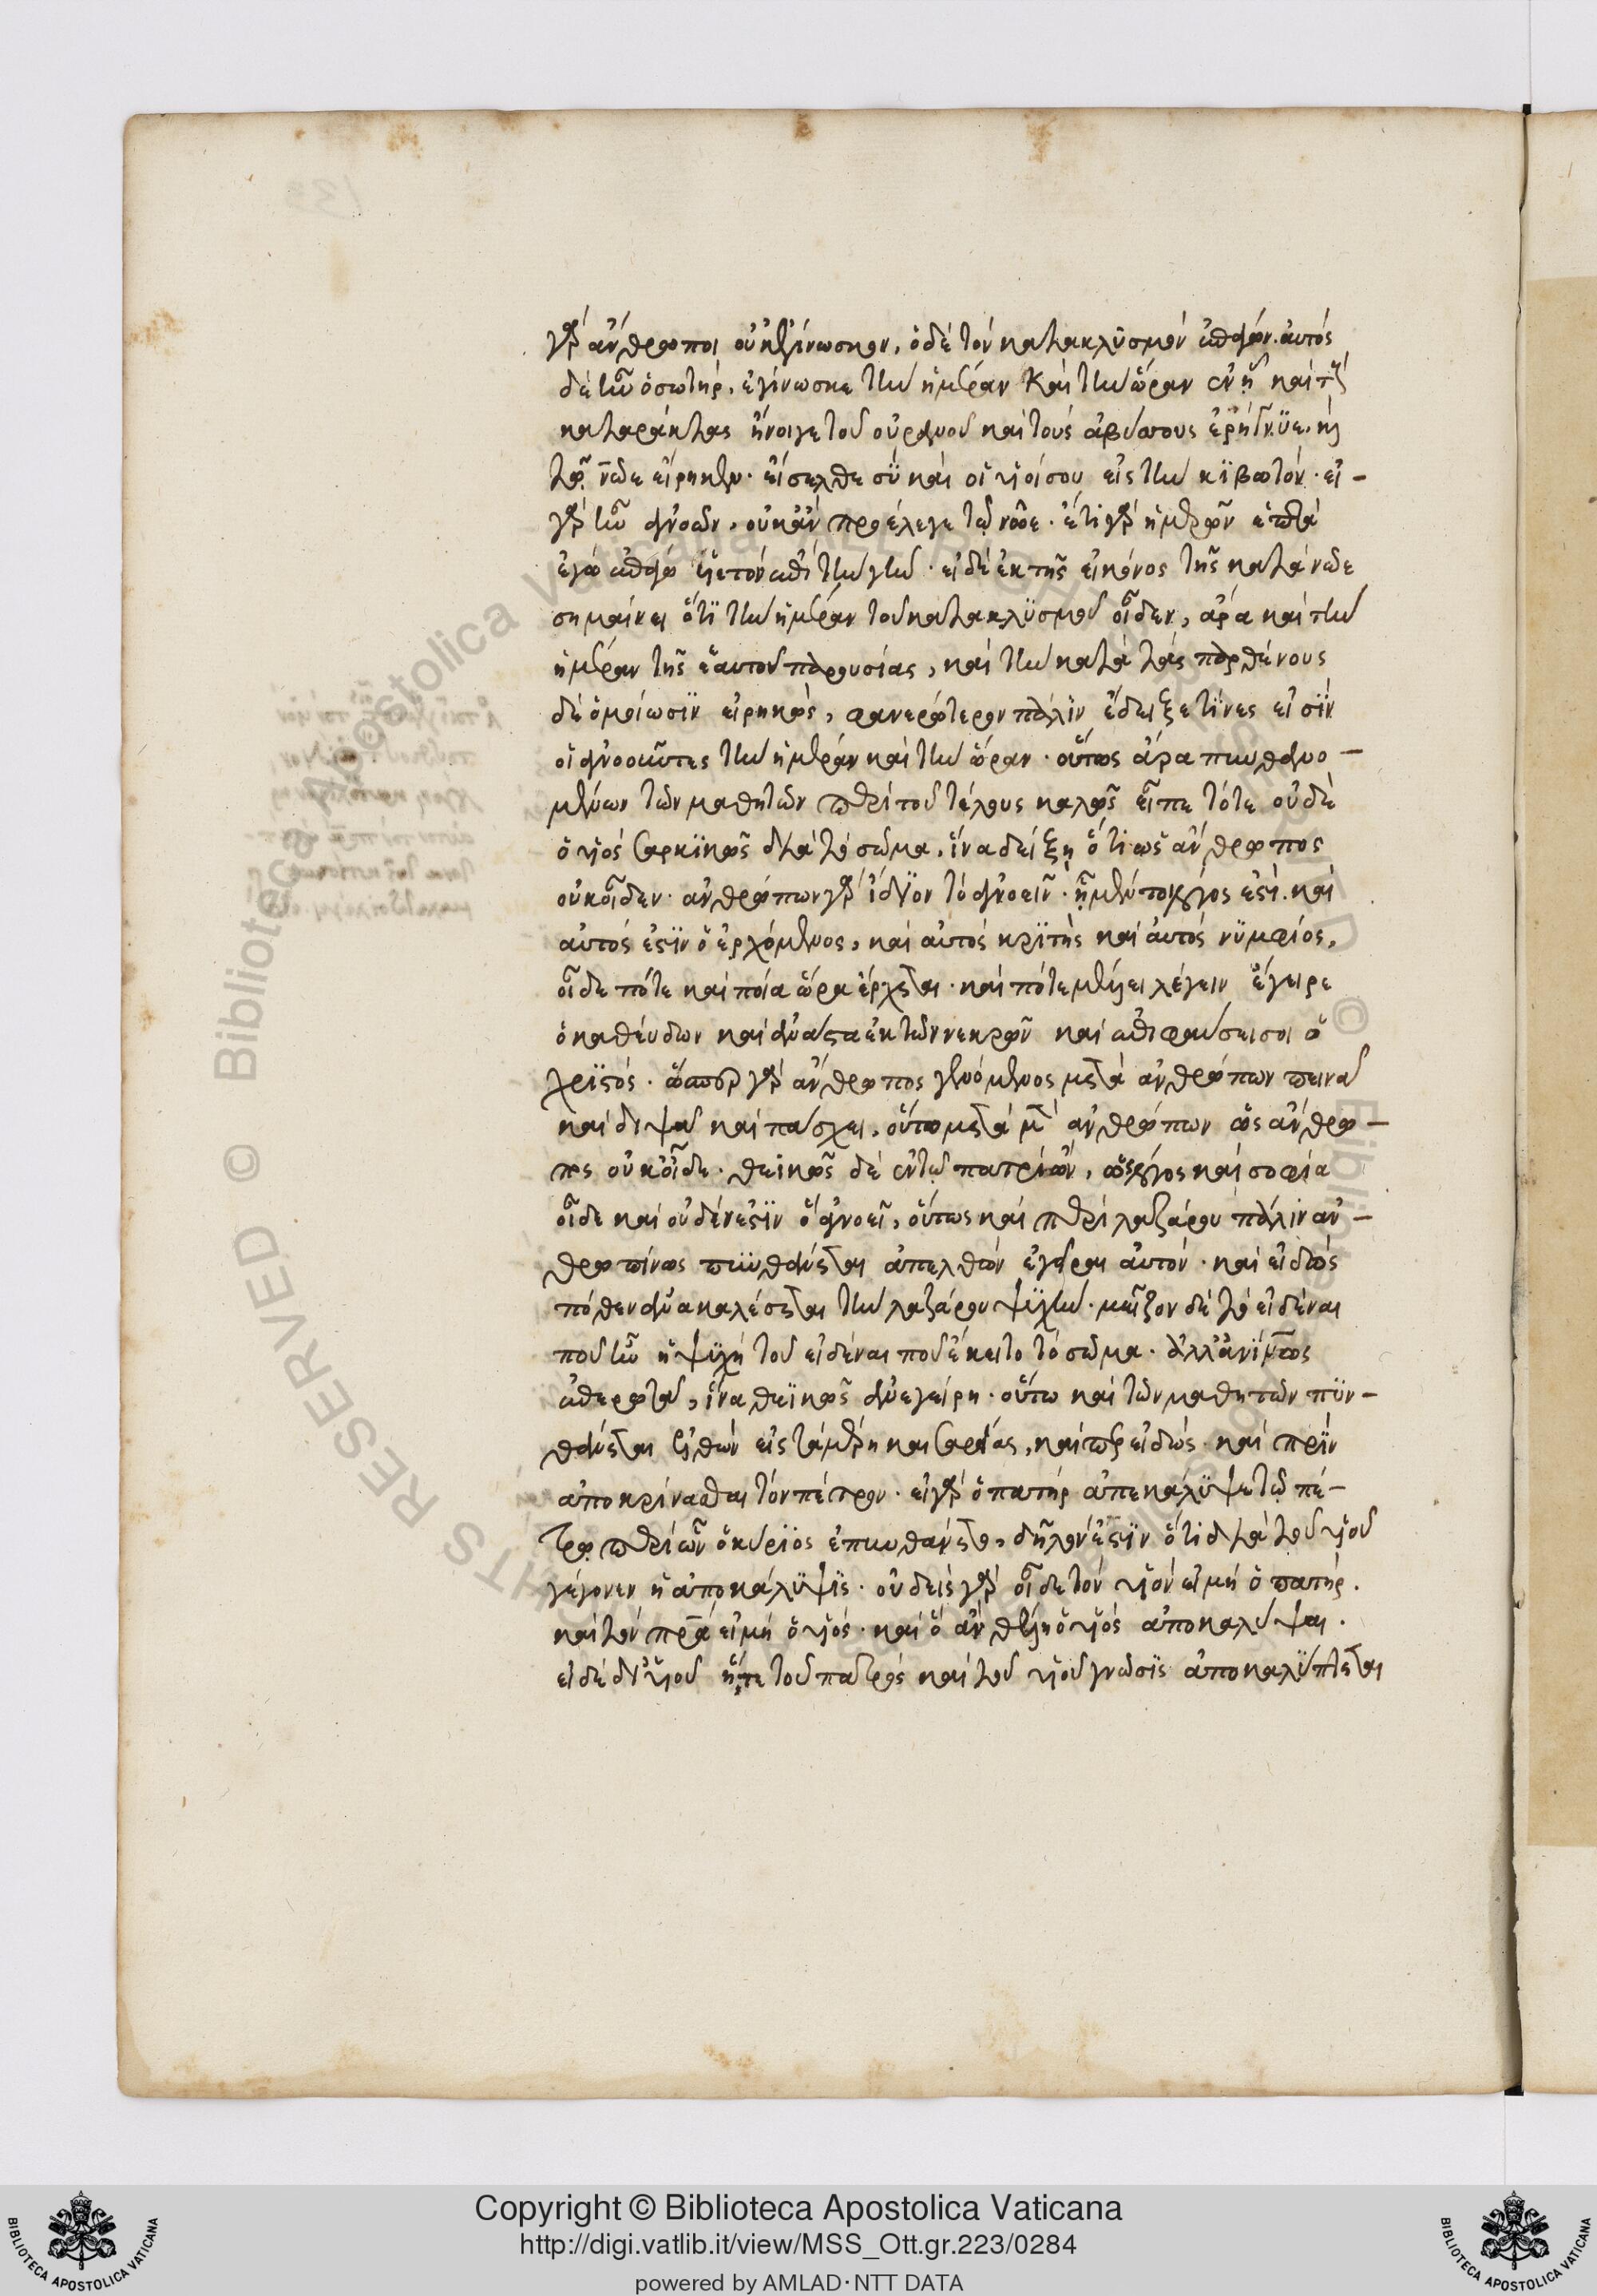 γὰρ ἄνθρωποι οὐκ ἐγίνωσκον, ὁ δὲ τὸν κατακλυσμὸν ἐπάγων. αὐτὸς
δὲ ἦν ὁ σωτήρ, ἐγίνωσκε τὴν ἡμέραν καὶ τὴν ὥραν ἐν ᾗ καὶ τοὺς
καταράκτας ἤνοιγε τοῦ οὐρανοῦ καὶ τοὺς ἀβύσσους ἐρήγνϋε. καὶ
τῷ νῶε εἴρηκεν· εἴσελθε σὺ καὶ οἱ υἱοί σου εἰς τὴν κϊβωτόν· εἰ –
γὰρ ἦν ἀγνοῶν, οὐκ ἂν προέλεγε τῷ νῶε· ἔτι γὰρ ἡμερῶν ἑπτὰ
ἐγὼ ἐπάγω ὑετὸν ἐπὶ τὴν γῆν· εἰ δὲ ἐκ τῆς εἰκόνος τῆς κατὰ νῶε
σημαίνει ὅτϊ τὴν ἡμέραν τοῦ κατακλϋσμοῦ οἶδεν, ἄρα καὶ τὴν
ἡμέραν τῆς ἑαυτοῦ παρουσίας, καὶ τὴν κατὰ τὰς παρθένους
δὲ ὁμοίωσϊν εἰρηκὼς, φανερώτερον πάλϊν ἔδειξε τίνες εἰσϊν
οἱ ἀγνοοῦντες τὴν ἡμέραν καὶ τὴν ὥραν· οὕτως ἄρα πυνθανο –
μένων τῶν μαθητῶν περὶ τοῦ τέλους καλῶς εἶπε τότε οὐδὲ
ὁ υἱὸς σαρκϊκῶς διὰ τὸ σῶμα, ἵνα δείξῃ ὅτι ὡς ἄνθρωπος
οὐκ οἶδεν· ἀνθρώπων γὰρ ἴδϊον τὸ ἀγνοεῖν· ἦ μέντοι λόγος ἐστὶ. καὶ
αὐτός ἐστϊν ὁ ἐρχόμενος, καὶ αὐτὸς κρϊτὴς καὶ αὐτὸς νϋμφίος,
οἶδε πότε καὶ ποία ὥρα ἔρχεται· καὶ πότε μέλλει λέγειν ἔγειρε
ὁ καθεύδων καὶ ἀνάστα ἐκ τῶν νεκρῶν καὶ ἐπιφαύσει σοι ὁ
χρϊστός· ὥσπερ γὰρ ἄνθρωπος γενόμενος μετὰ ἀνθρώπων πεινᾶ
καὶ διψᾶ καὶ πάσχει, οὕτω μετὰ ἀνθρώπων ὡς ἄνθρω –
πος οὐκ οἶδε· θεϊκῶς δὲ ἐν τῷ πατρὶ ὢν, ὡς λόγος καὶ σοφία
οἶδε καὶ οὐδέν ἐστϊν ὃ ἀγνοεῖ, οὕτως καὶ περὶ λαζάρου πάλϊν ἀν –
θρωπίνως πϋνθάνεται ἀπελθὼν ἐγεῖραι αὐτόν· καὶ εἰδὼς
πόθεν ἀνακαλέσεται τὴν λαζάρου ψϋχήν· μεῖζον δὲ τὸ εἰδέναι
ποῦ ἦν ἡ ψϋχὴ τοῦ εἰδέναι ποῦ ἔκειτο τὸ σῶμα·
ἐπερωτᾶ, ἵνα θεϊκῶς ἀνεγείρη· οὕτω καὶ τῶν μαθητῶν πϋν –
θάνεται ἐλθὼν εἰς τὰ μέρη καισαρείας, καίπερ εἰδὼς· καὶ πρϊν
ἀποκρίνασθαι τὸν πέτρον· εἰ γὰρ ὁ πατὴρ ἀπεκάλϋψε τῷ πέ –
τρω περὶ ὧν ὁ κύρϊος ἐπυνθάνετο, δῆλόν ἐστϊν ὅτι διὰ τοῦ υἱοῦ
γέγονεν ἡ ἀποκάλϋψϊς· οὐδεὶς γὰρ οἶδε τὸν υἱὸν εἰ μὴ ὁ πατήρ.
καὶ τὸν πρα εἰ μὴ ὁ υἱός· καὶ ὃ ἂν θέλη ὁ υἱὸς ἀποκαλύψαι.
εἰ δὲ δι' υἱοῦ ἥτε τοῦ πατρὸς καὶ τοῦ υἱοῦ γνῶσϊς ἀποκαλϋπτεται
© Biblioteca Apostolica Vaticana
Copyright © Biblioteca Apostolica Vaticana
http://digi.vatlib.it/view/MSS_Ott.gr.223/0284
powered by AMLAD·NTT DATA
BIBLIOTECA APOSTOLICA VATICANA
BIBLIOTECA APOSTOLICA VATICANA